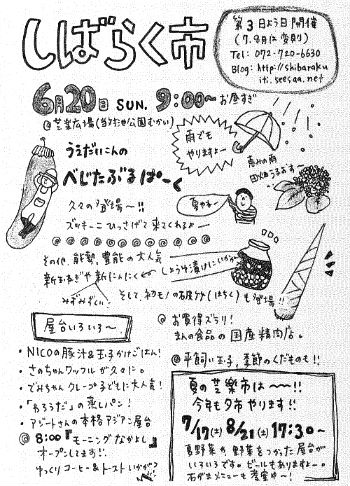 しばらく市
第3日よう日開催
(7.8月は夏市)
Tel: 072-720-6630
Blog: http://shibaraku
iti.seesaa.net
6月20日 SUN. 9:00～お昼すぎ
雨でも
やりますよー
うえだいこんの
べじたぶるぱーく
久々の登場〜!!
ズッキーニひっさげて来てくれるよー
夏やモー
その他、能勢、豊能の大人気
新玉ねぎや新にんにく
しょうゆ漬けにいかが
みずみずしい
そして、初モノの石ばち(はちく)も登場!!
屋台いろいろ〜
・NICOの豚汁&玉子かけごはん!
・さのちゃんワッフルが久々に。
・でみちゃんクレープ子どもに大人気!
・「わろうだ」の蒸しパン!
・アジートさんの本格アジアン屋台
@ 8:00『モーニングなかよし』
オープンしてます!!
ゆっくりコーヒー&トーストいかが?
@お買得ぞろい!
まんの食品の国産精肉店。
@平飼い玉子、季節のくだものも!!
夏の芝楽市は〜!!
今年も夕市やります!!
7/17(土) 8/21(土) 17:30〜
夏野菜の野菜をつかった屋台が
いろいろです。ビールもありますよー。
石がまメニューも考案中〜!